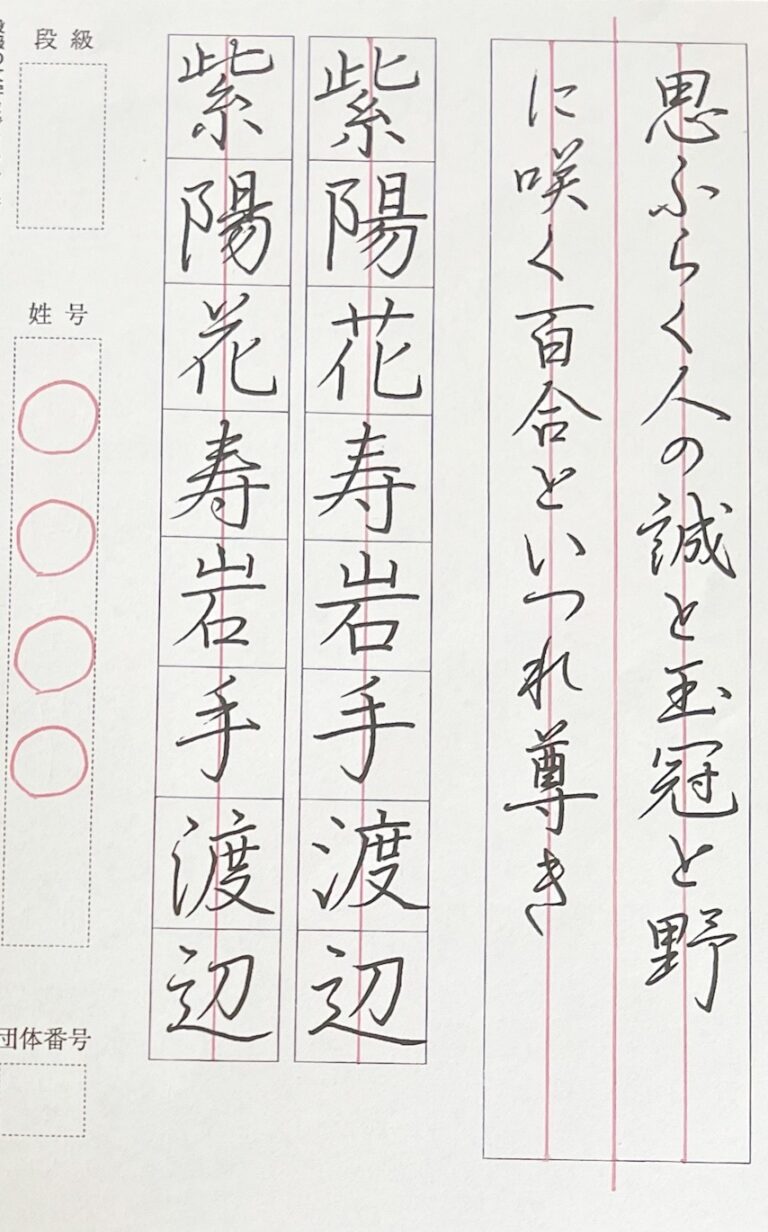 思ふらく人の誠と玉冠と野
に咲く百合といつれ尊き
紫陽花寿岩手渡辺
紫陽花寿岩手渡辺
段級
姓号
団体番号